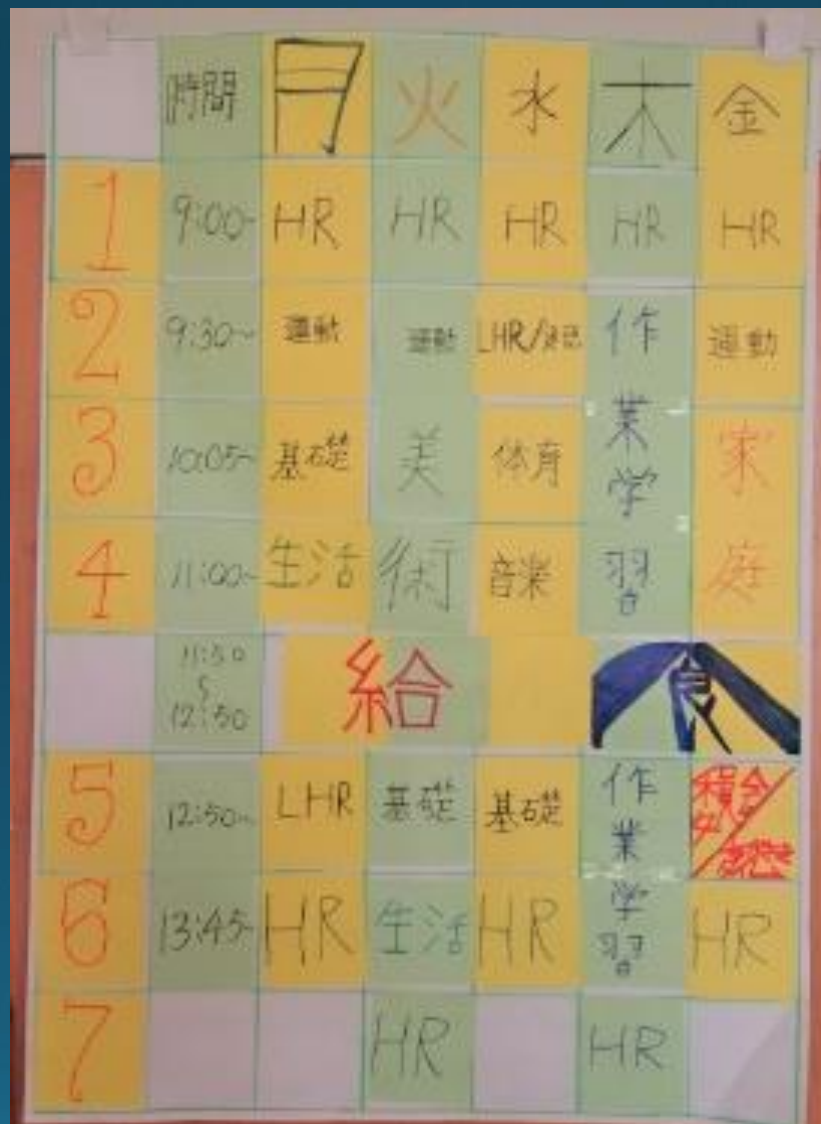 時間 月 火 水 木 金
1 9:00~ HR HR HR HR HR
2 9:30~ 運動 運動 LHR/ 作 運動
3 10:05~ 基礎 美 体育 業学 家
4 11:00~ 生活 術 音楽 習 庭
11:50
~
12:50
給 食
5 12:50~ LHR 基礎 基礎 作業
6 13:45~ HR 生活 HR 学習 HR
7 HR HR